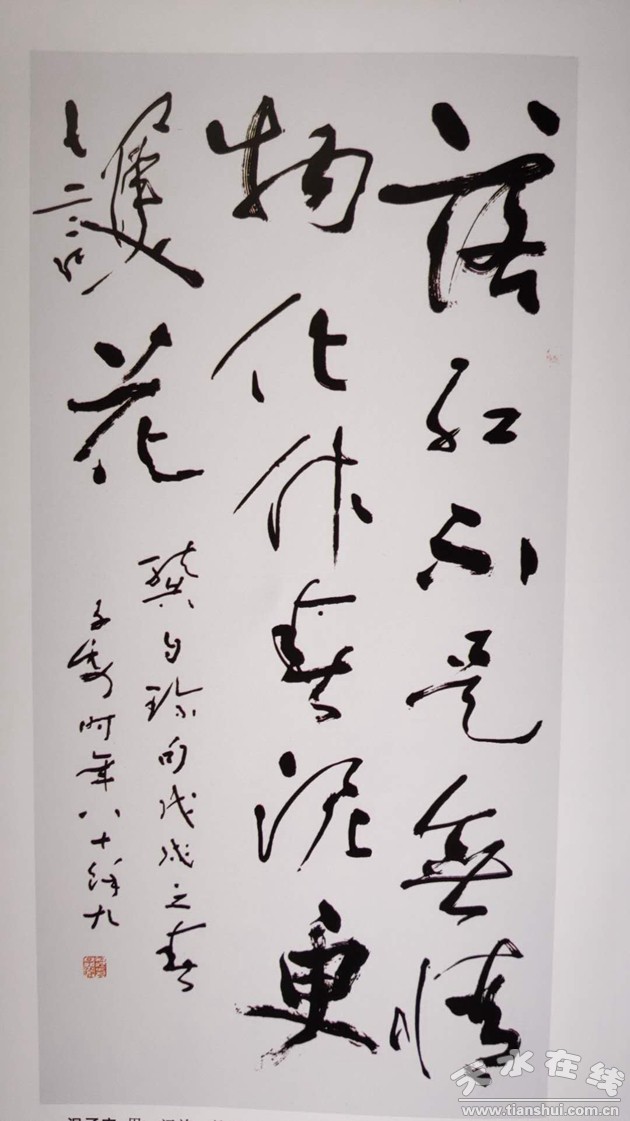 落紅不是無情
物化作春泥更
護花
龔自珍句戊戌之春
子 時年八十餘九
天水在线
www.tianshui.com.cn